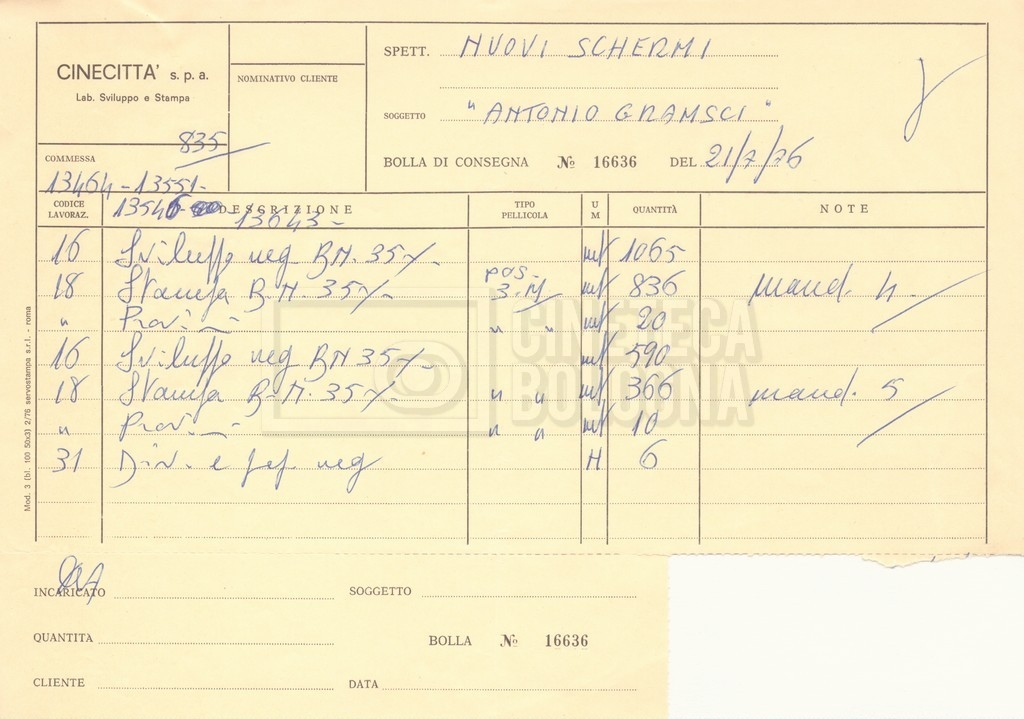 CINECITTA' s. p. a.
Lab. Sviluppo e Stampa
835
NOMINATIVO CLIENTE
SPETT. NUOVI SCHERMI
SOGGETTO "ANTONIO GRAMSCI"
BOLLA DI CONSEGNA № 16636 DEL 21/7/76
COMMESSA
13464-13551-
13546- 13643-
CODICE LAVORAZ. DESCRIZIONE TIPO PELLICOLA U M QUANTITÀ NOTE
16 Sviluppo neg BN. 35 mt 1065
18 Stampa B.N. 35 pos. 3.M mt 836 mand. 4
" Prov. " " mt 20
16 Sviluppo neg BN 35 mt 590
18 Stampa B.N. 35 " " mt 366 mand. 5
" Prov. " " mt 10
31 Div. e neg H 6
CINETECA
BOLOGNA
Mod. 3 (bl. 100 50x3) 2/76 servostampa s.r.l. - roma
INCARICATO SOGGETTO
QUANTITÀ BOLLA № 16636
CLIENTE DATA